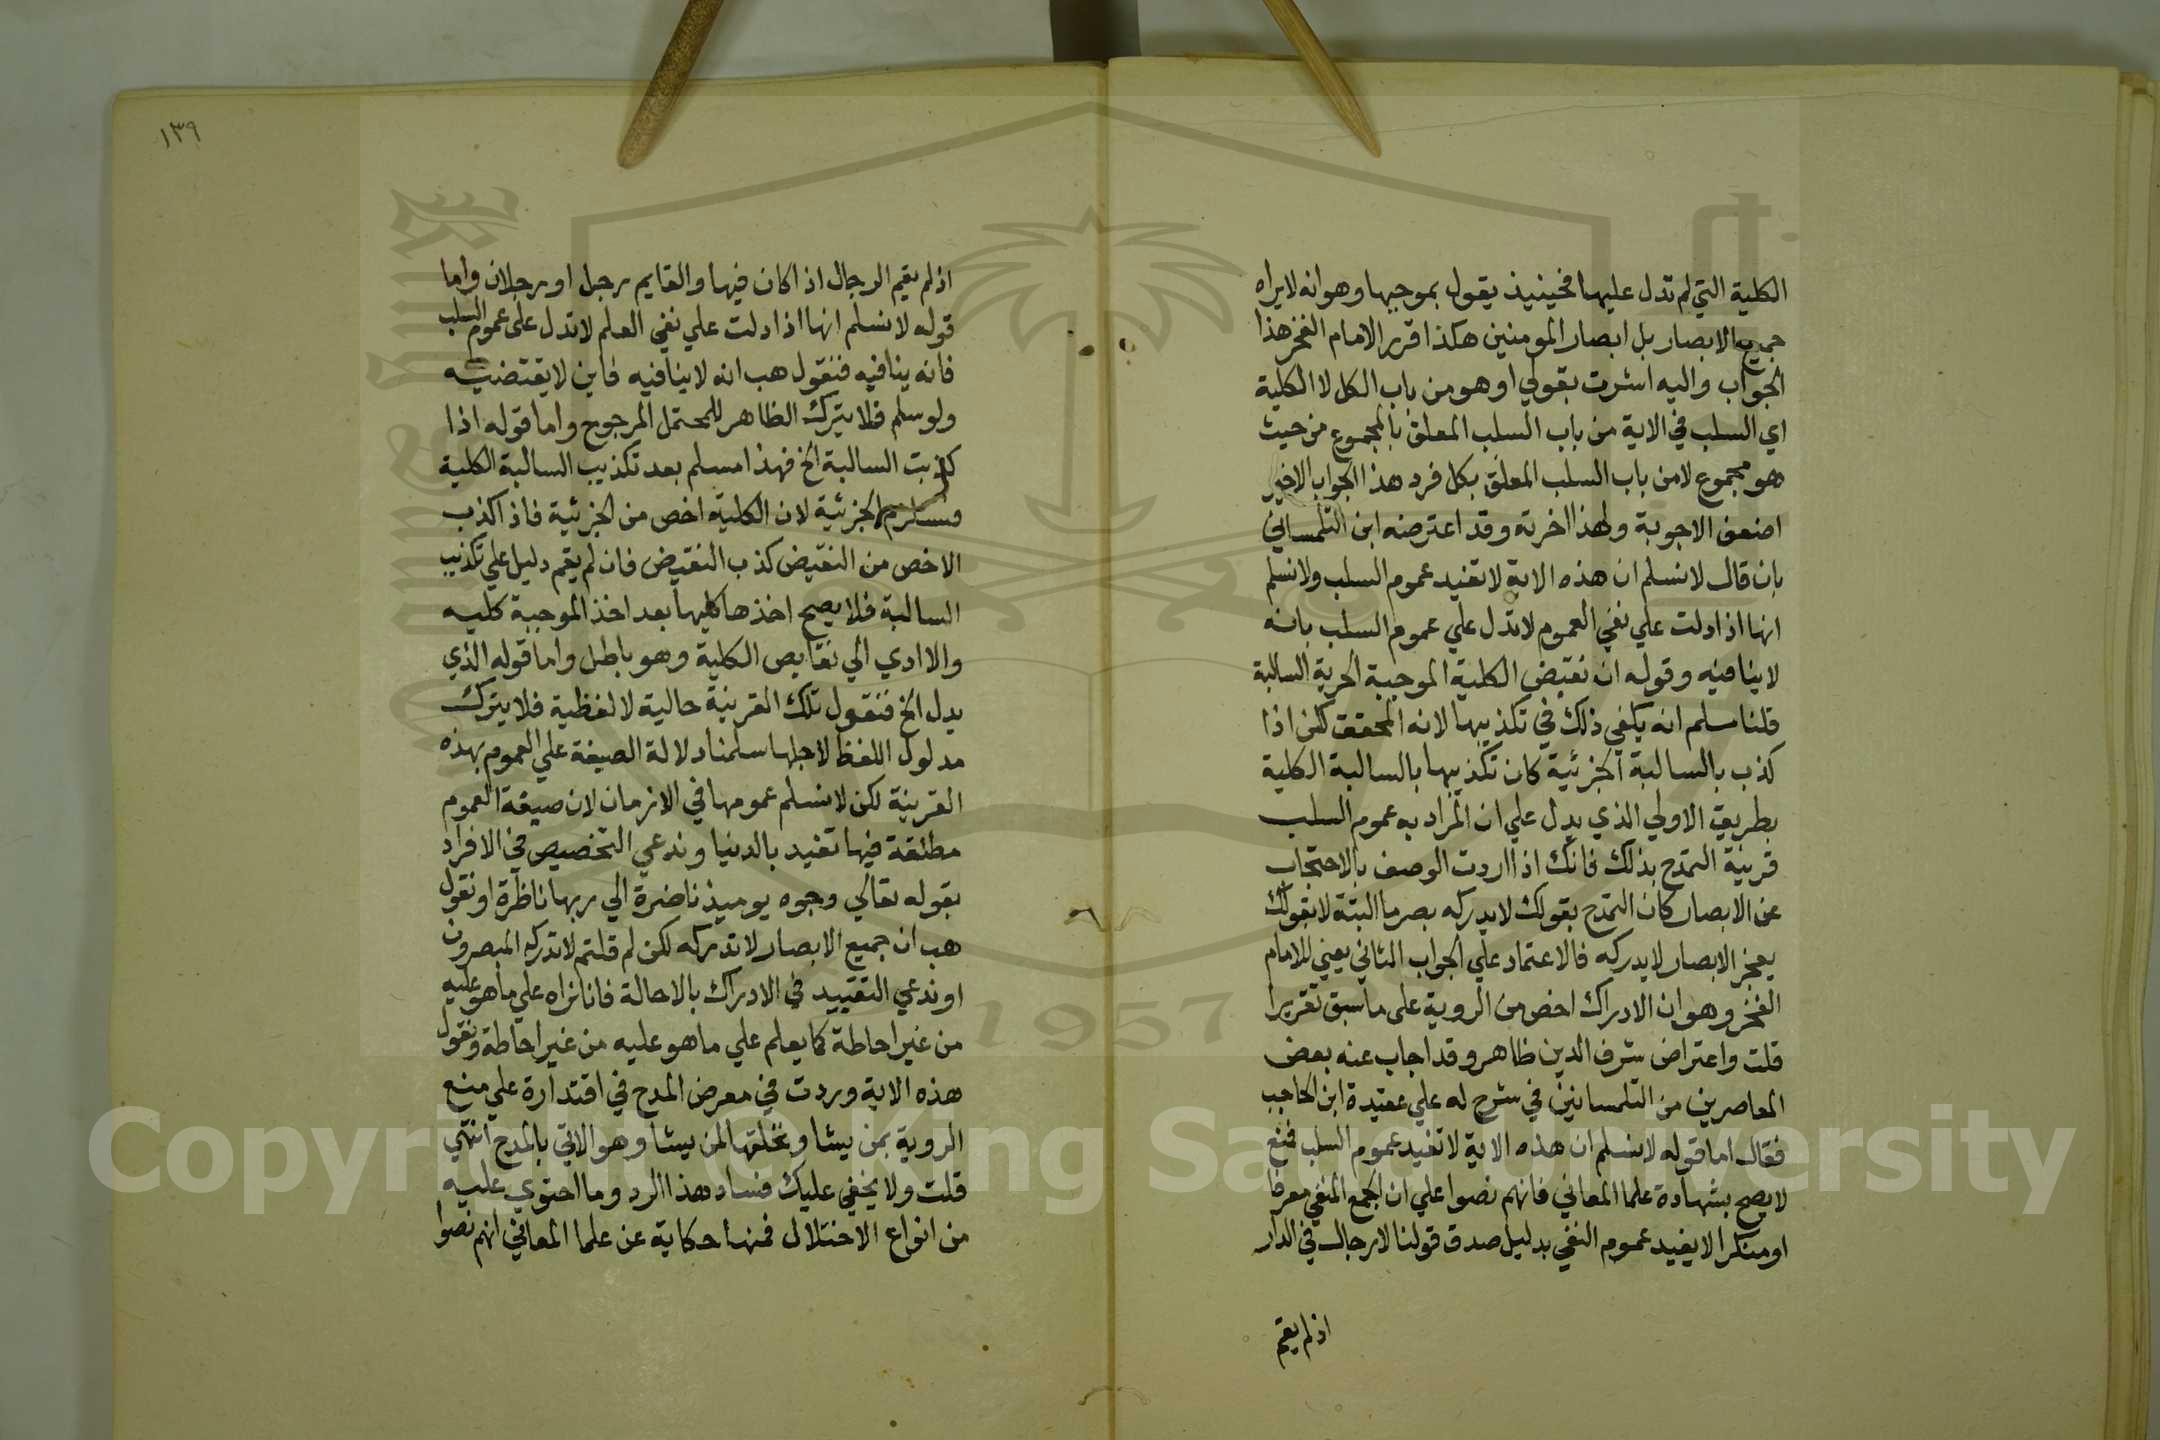 الكلية التي لم تدل عليها فحينيذ يقول بموجبها وهو انه لا يراه
جميع الابصار بل ابصار المومنين هكذا قرر الامام الفخر هذا
الجواب واليه اشرت بقولي او هو من باب الكل لا الكلية
اي السلب في الاية من باب السلب المعلق بالمجموع من حيث
هو مجموع لا من باب السلب المعلق بكل فرد هذا الجواب الاخير
اضعف الاجوبة ولهذا اخرته وقد اعترضه ابن التلمساني
بان قال لا نسلم ان هذه الاية لا تفيد عموم السلب ولا نسلم
انها اذا دلت علي نفي العموم لا تدل علي عموم السلب بانه
لا ينافيه وقوله ان نقيض الكلية الموجبة الجزية السالبة
قلنا مسلم انه يكفي ذلك في تكذيبها لانه المحقق لكن اذا
كذب بالسالبة الجزئية كان تكذيبها بالسالبة الكلية
بطريق الاولي الذي يدل علي ان المراد به عموم السلب
قرينة التمدح بذلك فانك اذا اردت الوصف بالاحتجاب
عن الابصار كان التمدح بقولك لا يدركه بصر ما البتة لا بقولك
بعض الابصار لا يدركه فالاعتماد علي الجواب الثاني يعني للامام
الفخر وهو ان الادراك اخص من الروية على ما سبق تقريرا
قلت واعتراض شرف الدين ظاهر وقد اجاب عنه بعض
المعاصرين من التلمسانين في شرح له علي عقيدة ابن الحاجب
فقال اما قوله لا نسلم ان هذه الاية لا تفيد عموم السلب فمنع
لا يصح بشهادة علما المعاني فانهم نصوا علي ان الجمع المنفي معرفا
او منكرا لا يفيد عموم النفي بدليل صدق قولنا لا رجال في الدار
اذ لم يقم
١٣٩
اذ لم يقم الرجال اذا كان فيها والقايم رجل او رجلان واما
قوله لا نسلم انها اذا دلت علي نفي العلم لا تدل على عموم السلب
فانه ينافيه فنقول هب انه لا ينافيه فاين لا يقتضيه
ولو سلم فلا يترك الظاهر للمحتمل المرجوح واما قوله اذا
كذبت السالبة الخ فهذا مسلم بعد تكذيب السالبة الكلية
الجزئية لان الكلية اخص من الجزئية فاذا كذب
الاخص من النقيض كذب النقيض فان لم يقم دليل علي تكذيب
السالبة فلا يصح اخذها كليها بعد اخذ الموجبة كليه
والا ادي الي نقايص الكلية وهو باطل واما قوله الذي
يدل الخ فنقول تلك القرينة حالية لا لفظية فلا يترك
مدلول اللفظ لاجلها سلمنا دلالة الصيغة علي العموم بهذه
القرينة لكن لا نسلم عمومها في الازمان لان صيغة العموم
مطلقة فيها تفيد بالدنيا وندعي التخصيص في الافراد
بقوله تعالي وجوه يوميذ ناضرة الي ربها ناظرة او نقول
هب ان جميع الابصار لا تدركه لكن لم قلتم لا تدركه المبصرون
او ندعي التقييد في الادراك بالاحالة فانا نراه علي ما هو عليه
من غير احاطة كما يعلم علي ما هو عليه من غير احاطة ونقول
هذه الاية وردت في معرض المدح في اقتداره علي منع
الروية بمن يشا ويخلقها لمن يشا وهو الاتي بالمدح انتهي
قلت ولا يخفي عليك فساد هذا الرد وما احتوي عليه
من انواع الاختلال فمنها حكاية عن علما المعاني انهم نصوا
Copyright © King Saud University
1957